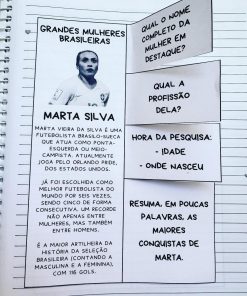 GRANDES MULHERES
BRASILEIRAS
MARTA SILVA
MARTA VIEIRA DA SILVA É UMA
FUTEBOLISTA BRASILO-SUECA
QUE ATUA COMO PONTA-
ESQUERDA OU MEIO-
CAMPISTA. ATUALMENTE
JOGA PELO ORLANDO PRIDE,
DOS ESTADOS UNIDOS.
JÁ FOI ESCOLHIDA COMO
MELHOR FUTEBOLISTA DO
MUNDO POR SEIS VEZES,
SENDO CINCO DE FORMA
CONSECUTIVA. UM RECORDE
NÃO APENAS ENTRE
MULHERES, MAS TAMBÉM
ENTRE HOMENS.
É A MAIOR ARTILHEIRA DA
HISTÓRIA DA SELEÇÃO
BRASILEIRA (CONTANDO A
MASCULINA E A FEMININA)
COM 116 GOLS.
QUAL O NOME
COMPLETO DA
MULHER EM
DESTAQUE?
QUAL A
PROFISSÃO
DELA?
HORA DA PESQUISA:
- IDADE
- ONDE NASCEU
RESUMA, EM POUCAS
PALAVRAS, AS
MAIORES
CONQUISTAS DE
MARTA.